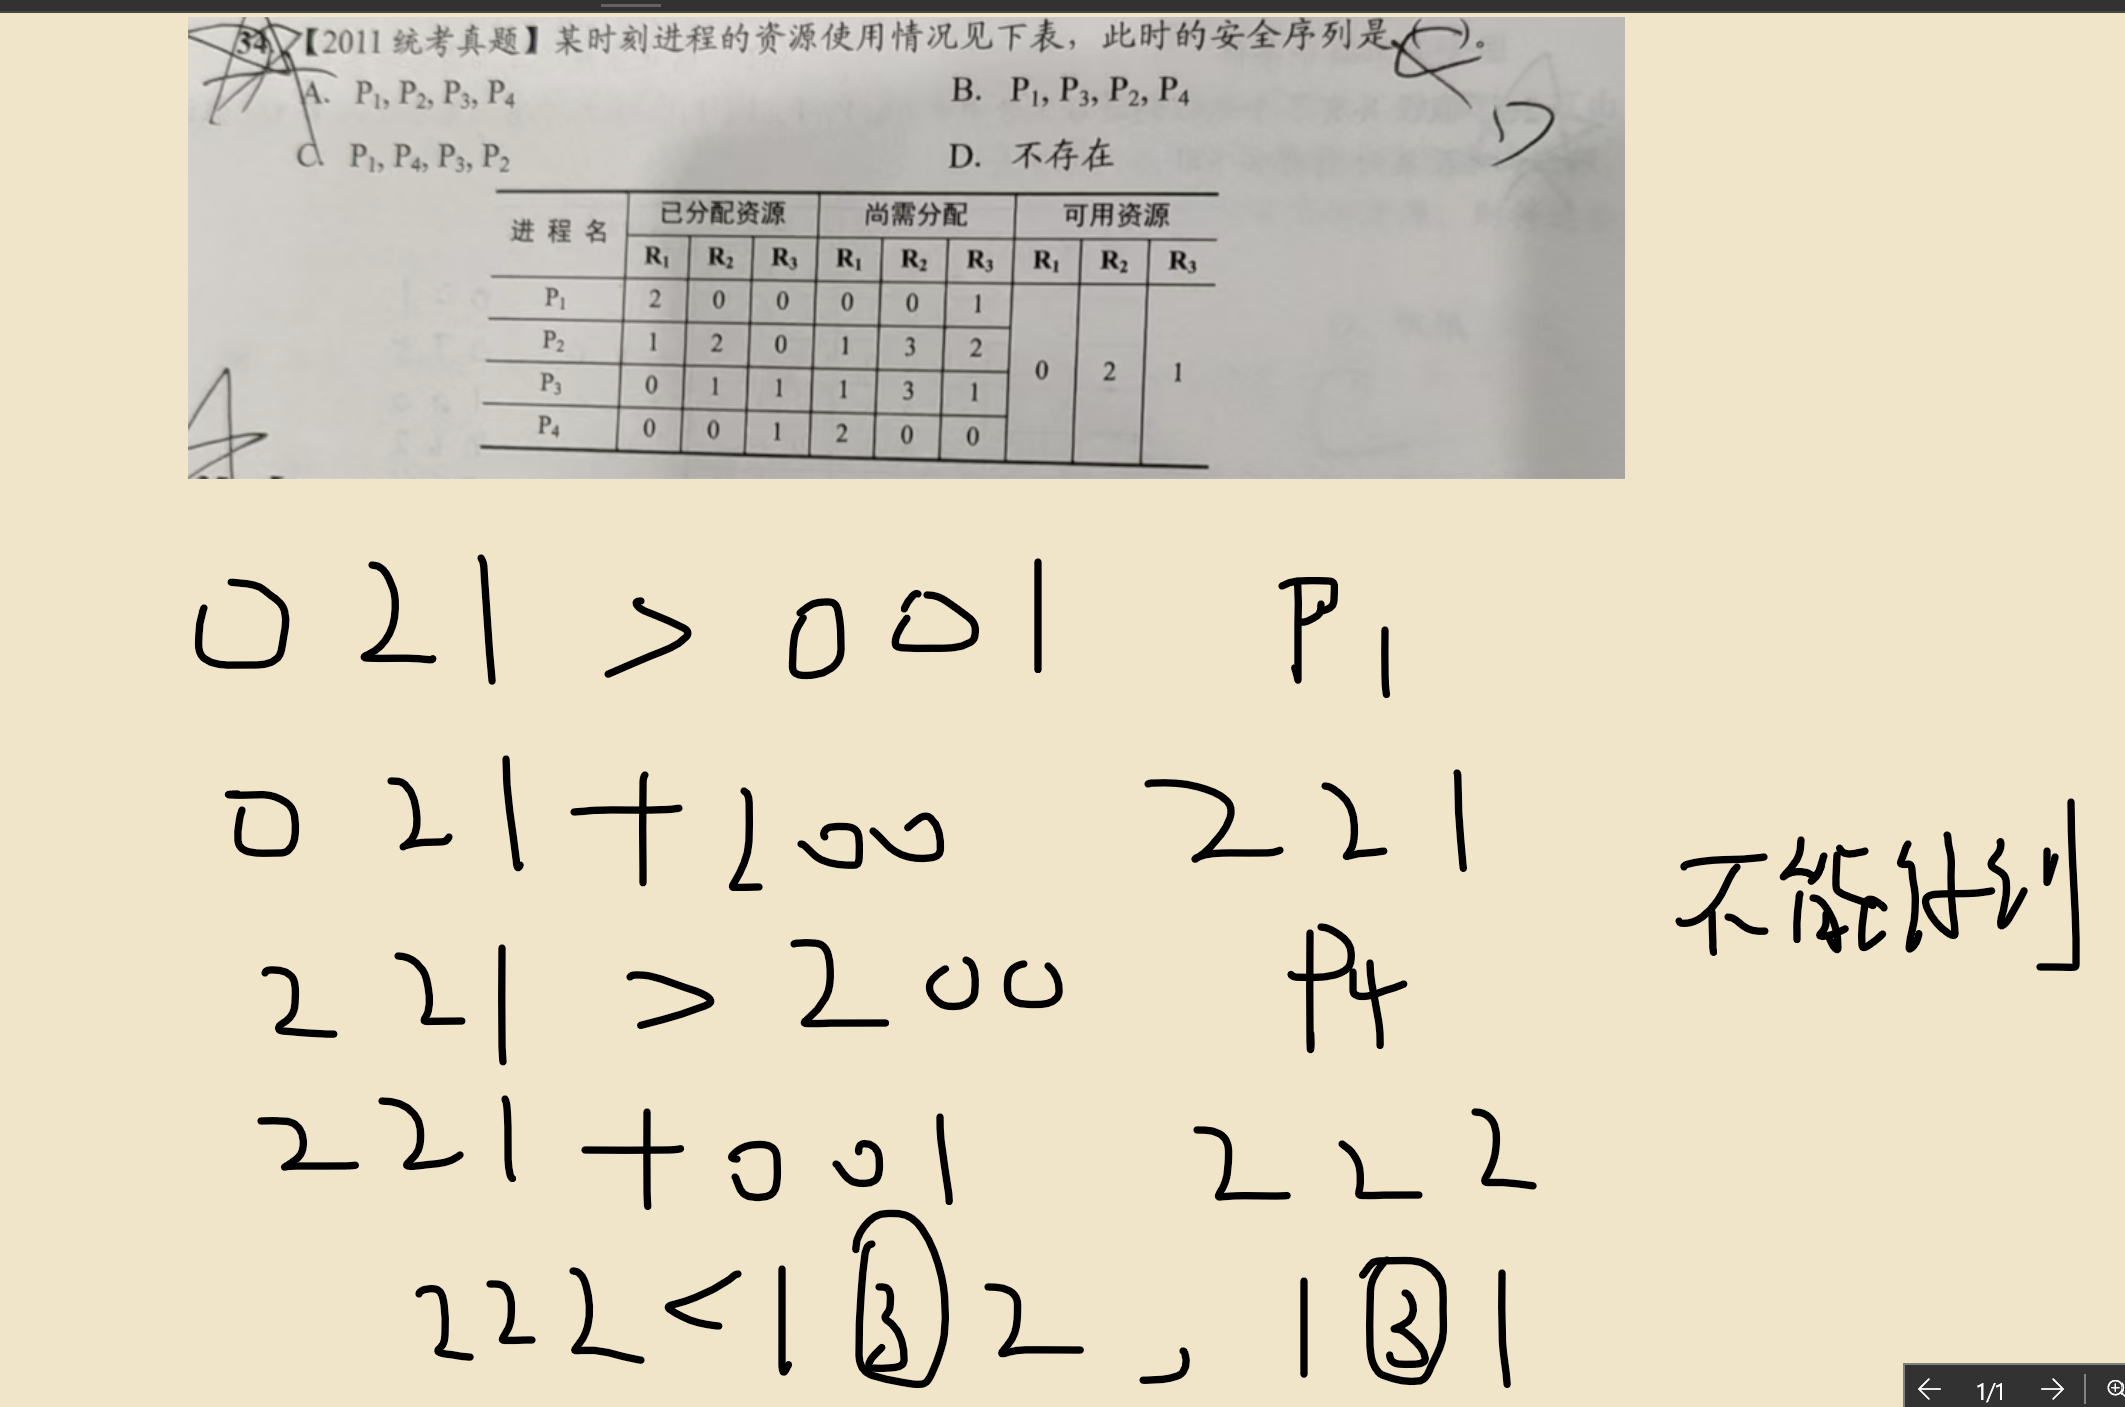 34. 【2011 统考真题】某时刻进程的资源使用情况见下表，此时的安全序列是（ ）。
D
A. P₁, P₂, P₃, P₄ B. P₁, P₃, P₂, P₄
C. P₁, P₄, P₃, P₂ D. 不存在
进程名 已分配资源 尚需分配 可用资源
R₁ R₂ R₃ R₁ R₂ R₃ R₁ R₂ R₃
P₁ 2 0 0 0 0 1
P₂ 1 2 0 1 3 2
0 2 1
P₃ 0 1 1 1 3 1
P₄ 0 0 1 2 0 0
0 2 1 > 0 0 1 P1
0 2 1 + 200 2 2 1
不能
2 2 1 > 2 0 0 P4
2 2 1 + 0 0 1 2 2 2
2 2 2 < 1 3 2 , 1 3 1
1/1